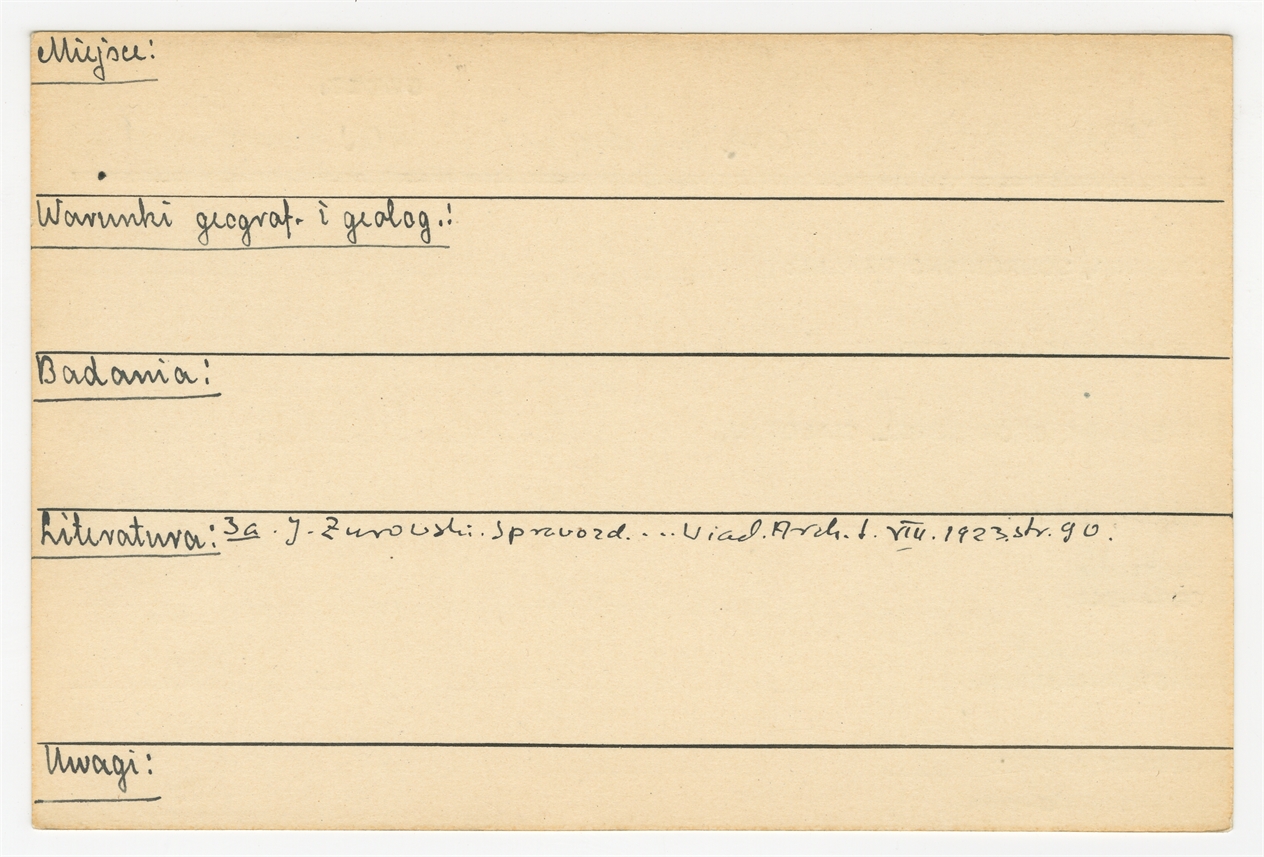 Miejsce:
Warunki geograf. i geolog.:
Badania:
Literatura: 3a. J. Żurowski. Sprawozd. ... Wiad. Arch. t. VIII. 1923. str. 90.
Uwagi: